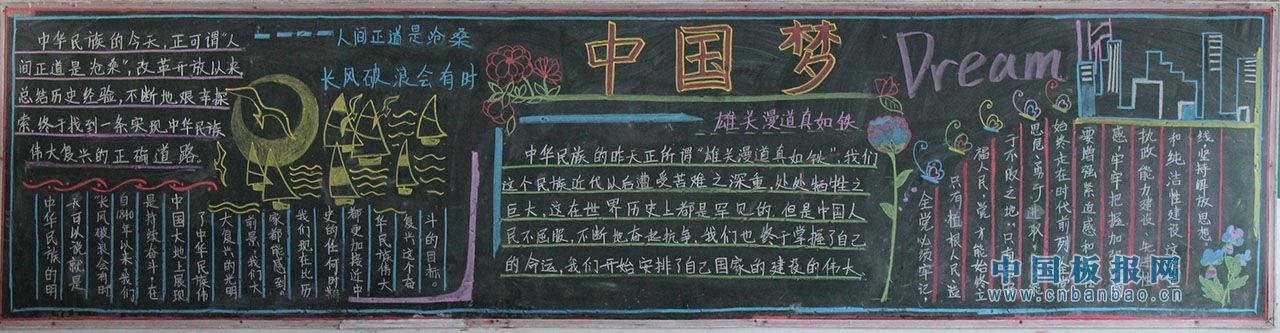 中华民族的今天，正可谓"人
间正道是沧桑"，改革开放以来
总结历史经验，不断地艰辛探
索，终于找到一条实现中华民族
伟大复兴的正确道路。
人间正道是沧桑
长风破浪会有时
中华民族的明
天可以说就是
"长风破浪会有时
自1840年以来，我们
是持续奋斗，在
中国大地上展现
了中华民族伟
大复兴的光明
前景，我们大
家都能感到
我们现在比历
史的任何时期
都更加接近中
华民族伟大
复兴这个奋
斗的目标。
中国梦
Dream
雄关漫道真如铁
中华民族的昨天正所谓"雄关漫道真如铁"我们
这个民族近代以后遭受苦难之深重，处处牺牲之
巨大，这在世界历史上都是罕见的，但是中国人
民不屈服，不断地奋起抗争，我们也终于掌握了自己
的命运，我们开始安排了自己国家的建设的伟大
全党必须牢记，
只有植根人民、造
福人民，党才能始终立
于不败之地；只有
思危、勇于进取，
始终走在时代前列，全
要增强紧迫感和
感，牢牢把握加
执政能力建设、先进性
和纯洁性建设这
线，坚持解放思想
中国板报网
www.cnbanbao.cn